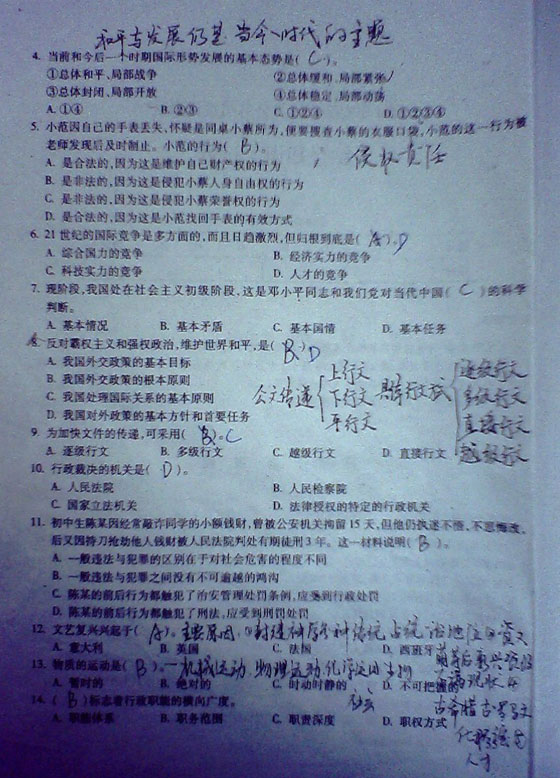 和平与发展仍是当今时代的主题
4. 当前和今后一个时期国际形势发展的基本态势是( C )。
①总体和平、局部战争 ②总体缓和、局部紧张
③总体封闭、局部开放 ④总体稳定、局部动荡
A. ①④ B. ②③ C. ①②④ D. ①②③④
5. 小范因自己的手表丢失,怀疑是同桌小蔡所为,便要搜查小蔡的衣服口袋,小范的这一行为被
老师发现后及时制止。小范的行为( B )。
侵权责任
A. 是合法的,因为这是维护自己财产权的行为
B. 是非法的,因为是侵犯小蔡人身自由权的行为
C. 是非法的,因为是侵犯小蔡荣誉权的行为
D. 是合法的,因为这是小范找回手表的有效方式
6. 21 世纪的国际竞争是多方面的,而且日趋激烈,但归根到底是( A )。D
A. 综合国力的竞争 B. 经济实力的竞争
C. 科技实力的竞争 D. 人才的竞争
7. 现阶段,我国处在社会主义初级阶段,这是邓小平同志和我们党对当代中国( C )的科学
判断。
A. 基本情况 B. 基本矛盾 C. 基本国情 D. 基本任务
8. 反对霸权主义和强权政治,维护世界和平,是( B )D
A. 我国外交政策的基本目标
B. 我国外交政策的根本原则
C. 我国处理国际关系的基本原则
D. 我国对外政策的基本方针和首要任务
公文传递 上行文 下行文 平行文
逐级行文 多级行文 直接行文 越级行文
9. 为加快文件的传递,可采用( B )。C
A. 逐级行文 B. 多级行文 C. 越级行文 D. 直接行文
10. 行政裁决的机关是( D )。
A. 人民法院 B. 人民检察院
C. 国家立法机关 D. 法律授权的特定的行政机关
11. 初中生陈某因经常敲诈同学的小额钱财,曾被公安机关拘留 15 天,但他仍执迷不悟,不思悔改,
后又因持刀抢劫他人钱财被人民法院判处有期徒刑 3 年。这一材料说明( B )。
A. 一般违法与犯罪的区别在于对社会危害的程度不同
B. 一般违法与犯罪之间没有不可逾越的鸿沟
C. 陈某的前后行为都触犯了治安管理处罚条例,应受到行政处罚
D. 陈某的前后行为都触犯了刑法,应受到刑罚处罚
12. 文艺复兴兴起于( A )。主要原因:
A. 意大利 B. 英国 C. 法国 D. 西班牙
13. 物质的运动是( B )。机械运动、物理运动、化学运动 生物
社会
A. 暂时的 B. 绝对的 C. 时动时静的 D. 不可把握的
14. ( B )标志着行政职能的横向广度。
A. 职能体系 B. 职务范围 C. 职责深度 D. 职权方式
人才